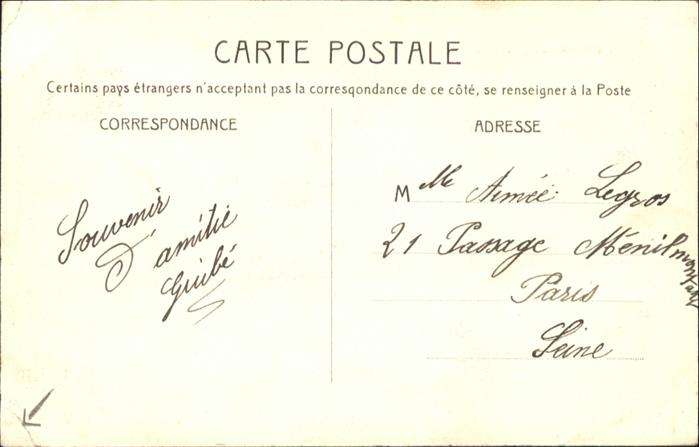 CARTE POSTALE
Certains pays étrangers n'acceptant pas la correspondance de ce côté, se renseigner à la Poste
CORRESPONDANCE
Souvenir
D'amitie
Guibé
ADRESSE
M lle Aimée Legros
21 Passage Ménilmontant
Paris
Seine